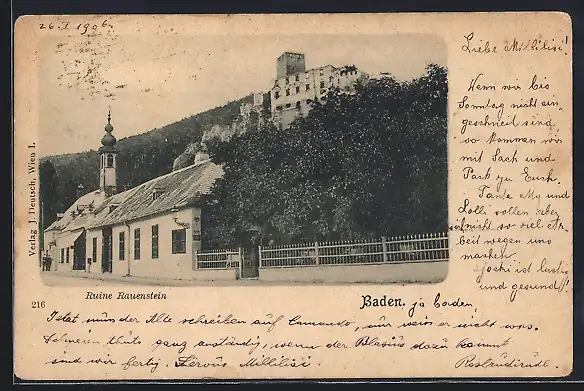 26. I 1906.
Liebe Millilisi!
Wenn wir bis
Sonntag nicht ein-
geschneit sind,
so kommen wir
mit Sach und
Pack zu Euch.
Tante und
Lolli wollen aber
nicht so viel Ar-
beit wegen uns
machen,
ist lustig
und gesund!
Verlag J. Deutsch, Wien I.
216
Ruine Rauenstein
Baden. ja baden
Jetzt muss der Alte schreiben auf Comando, nur weiss er nicht was.
Schneien thuts ganz anständig, wenn der Blasius dazu kommt
sind wir fertig. Servus Millilisi.